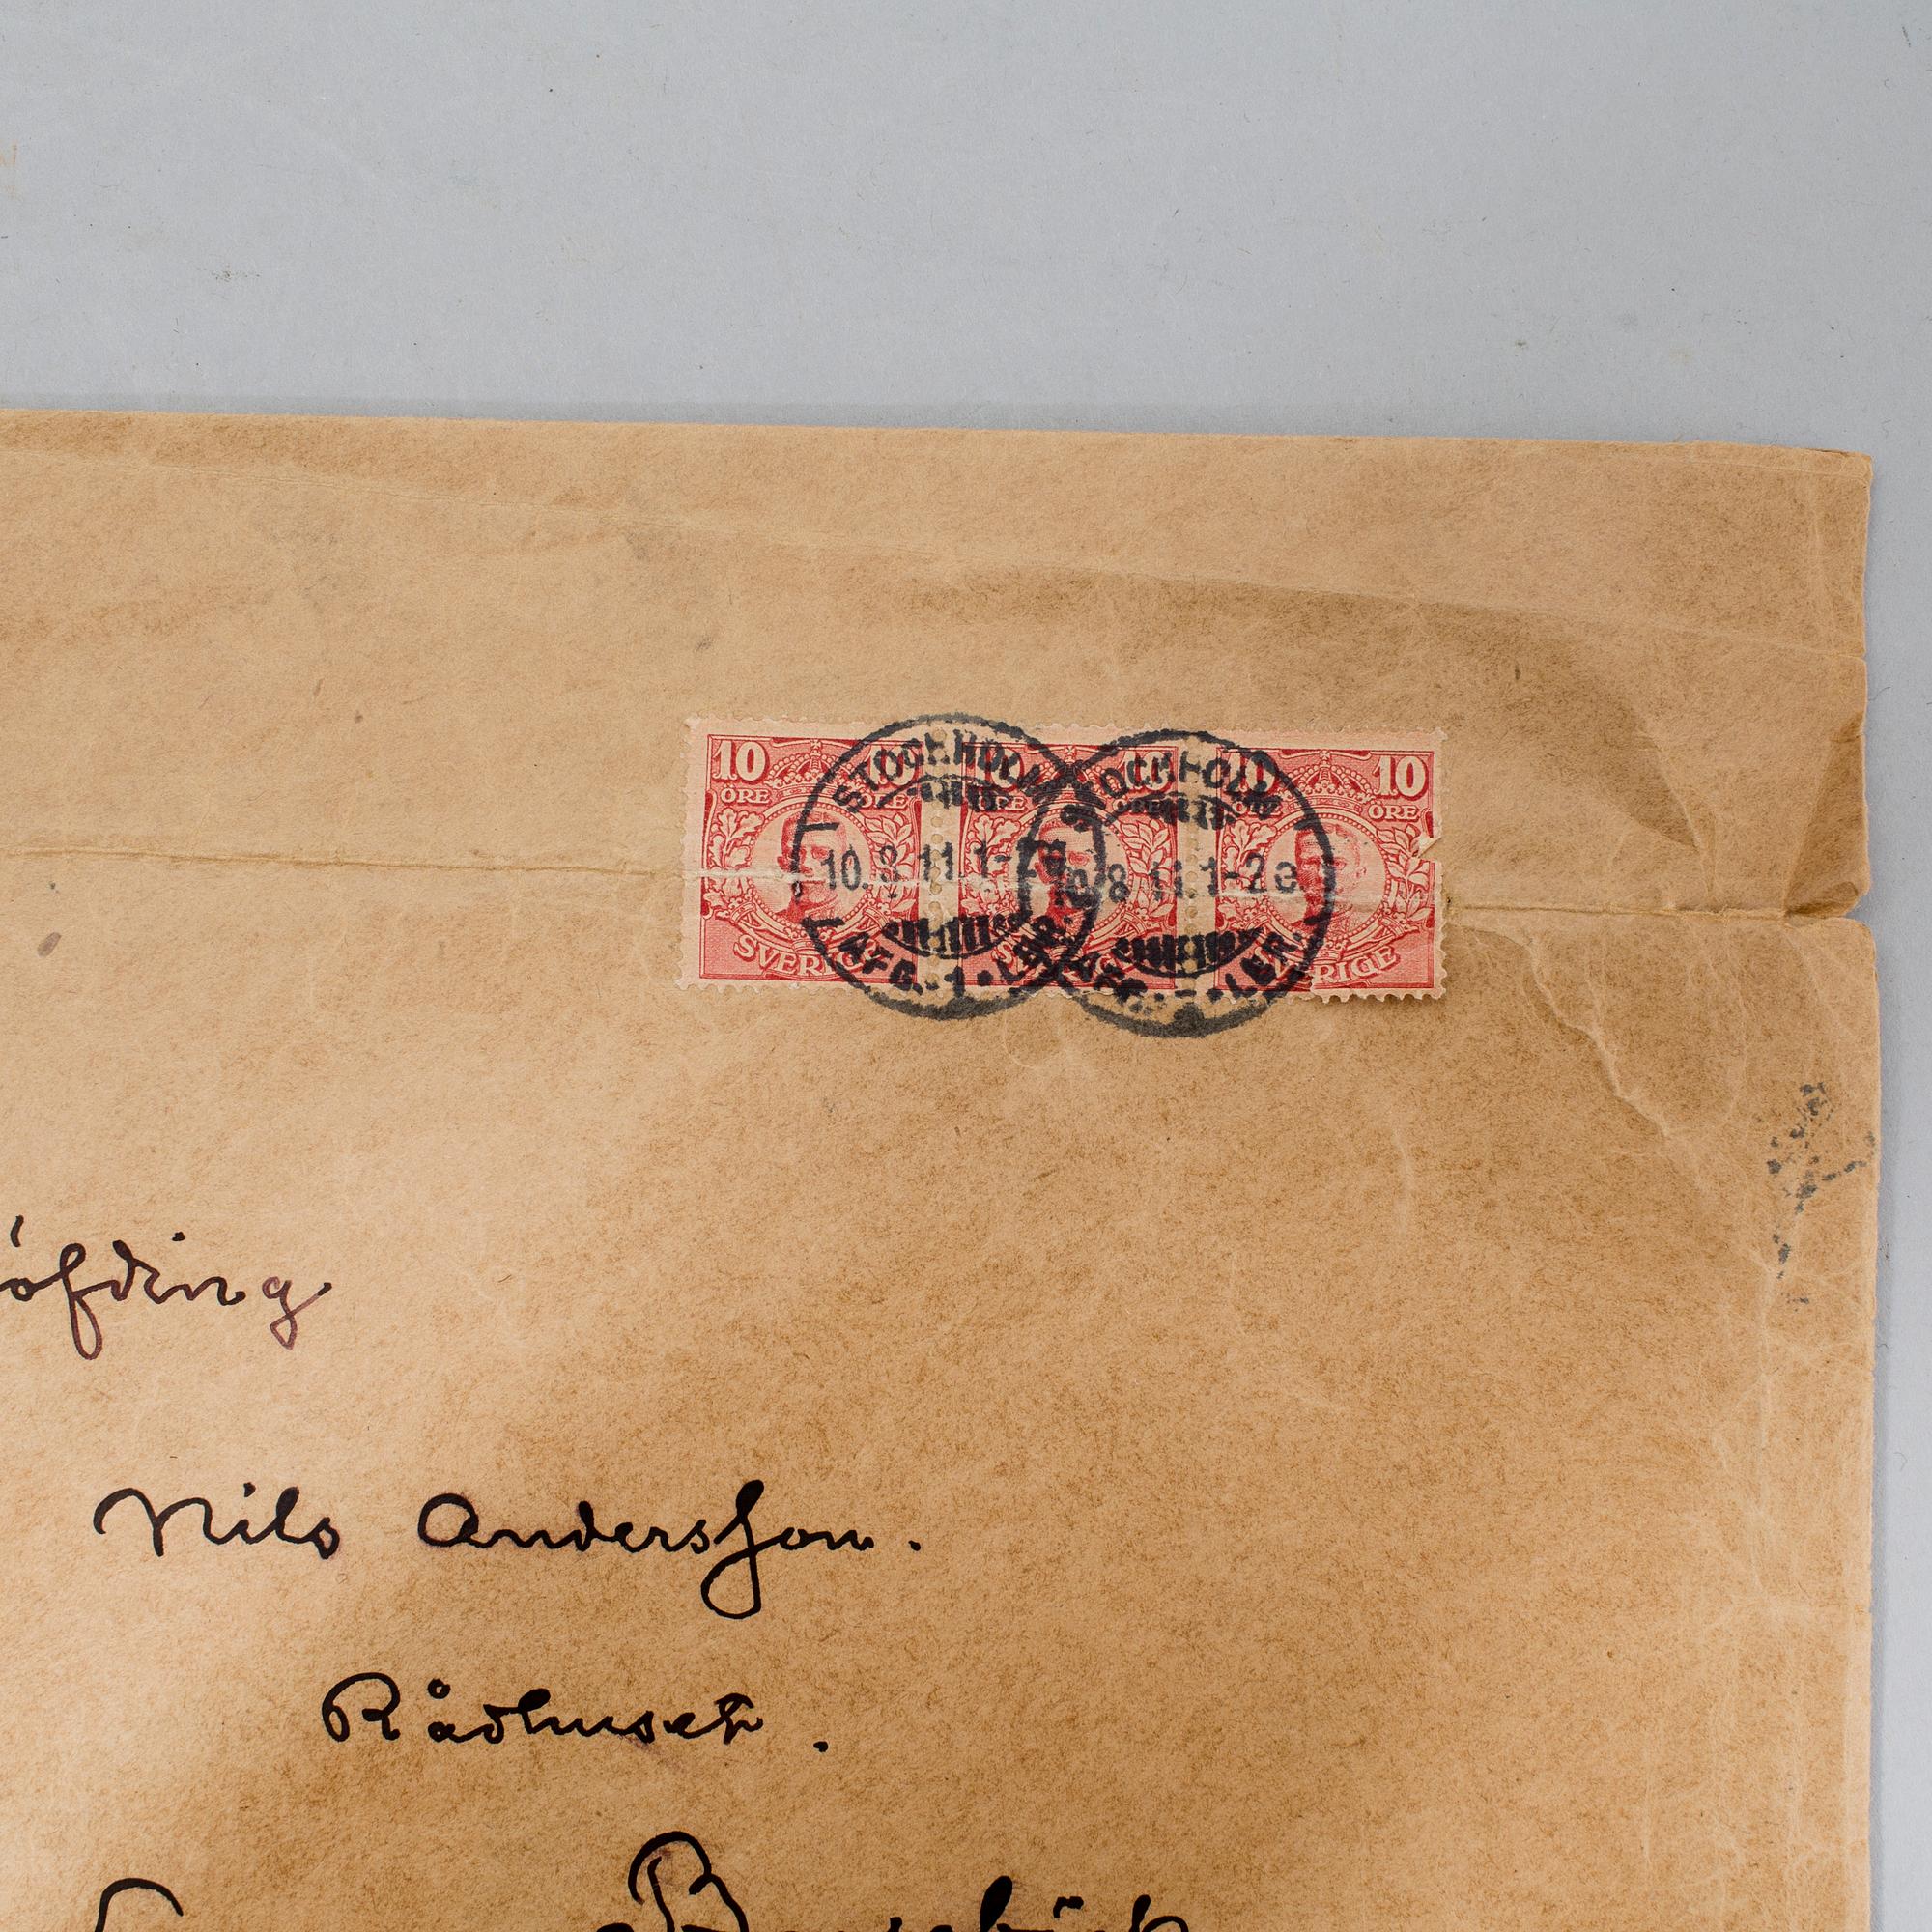 10 10 10 10 10 10
ÖRE ÖRE ÖRE ÖRE ÖRE ÖRE
STOCKHOLM STOCKHOLM
10.8.11.1- 10.8.11.1-2e
SVERIGE SVERIGE
AFG.1.LBR. AFG.1.LBR.
öfding
Nils Andersson.
Rådhuset.